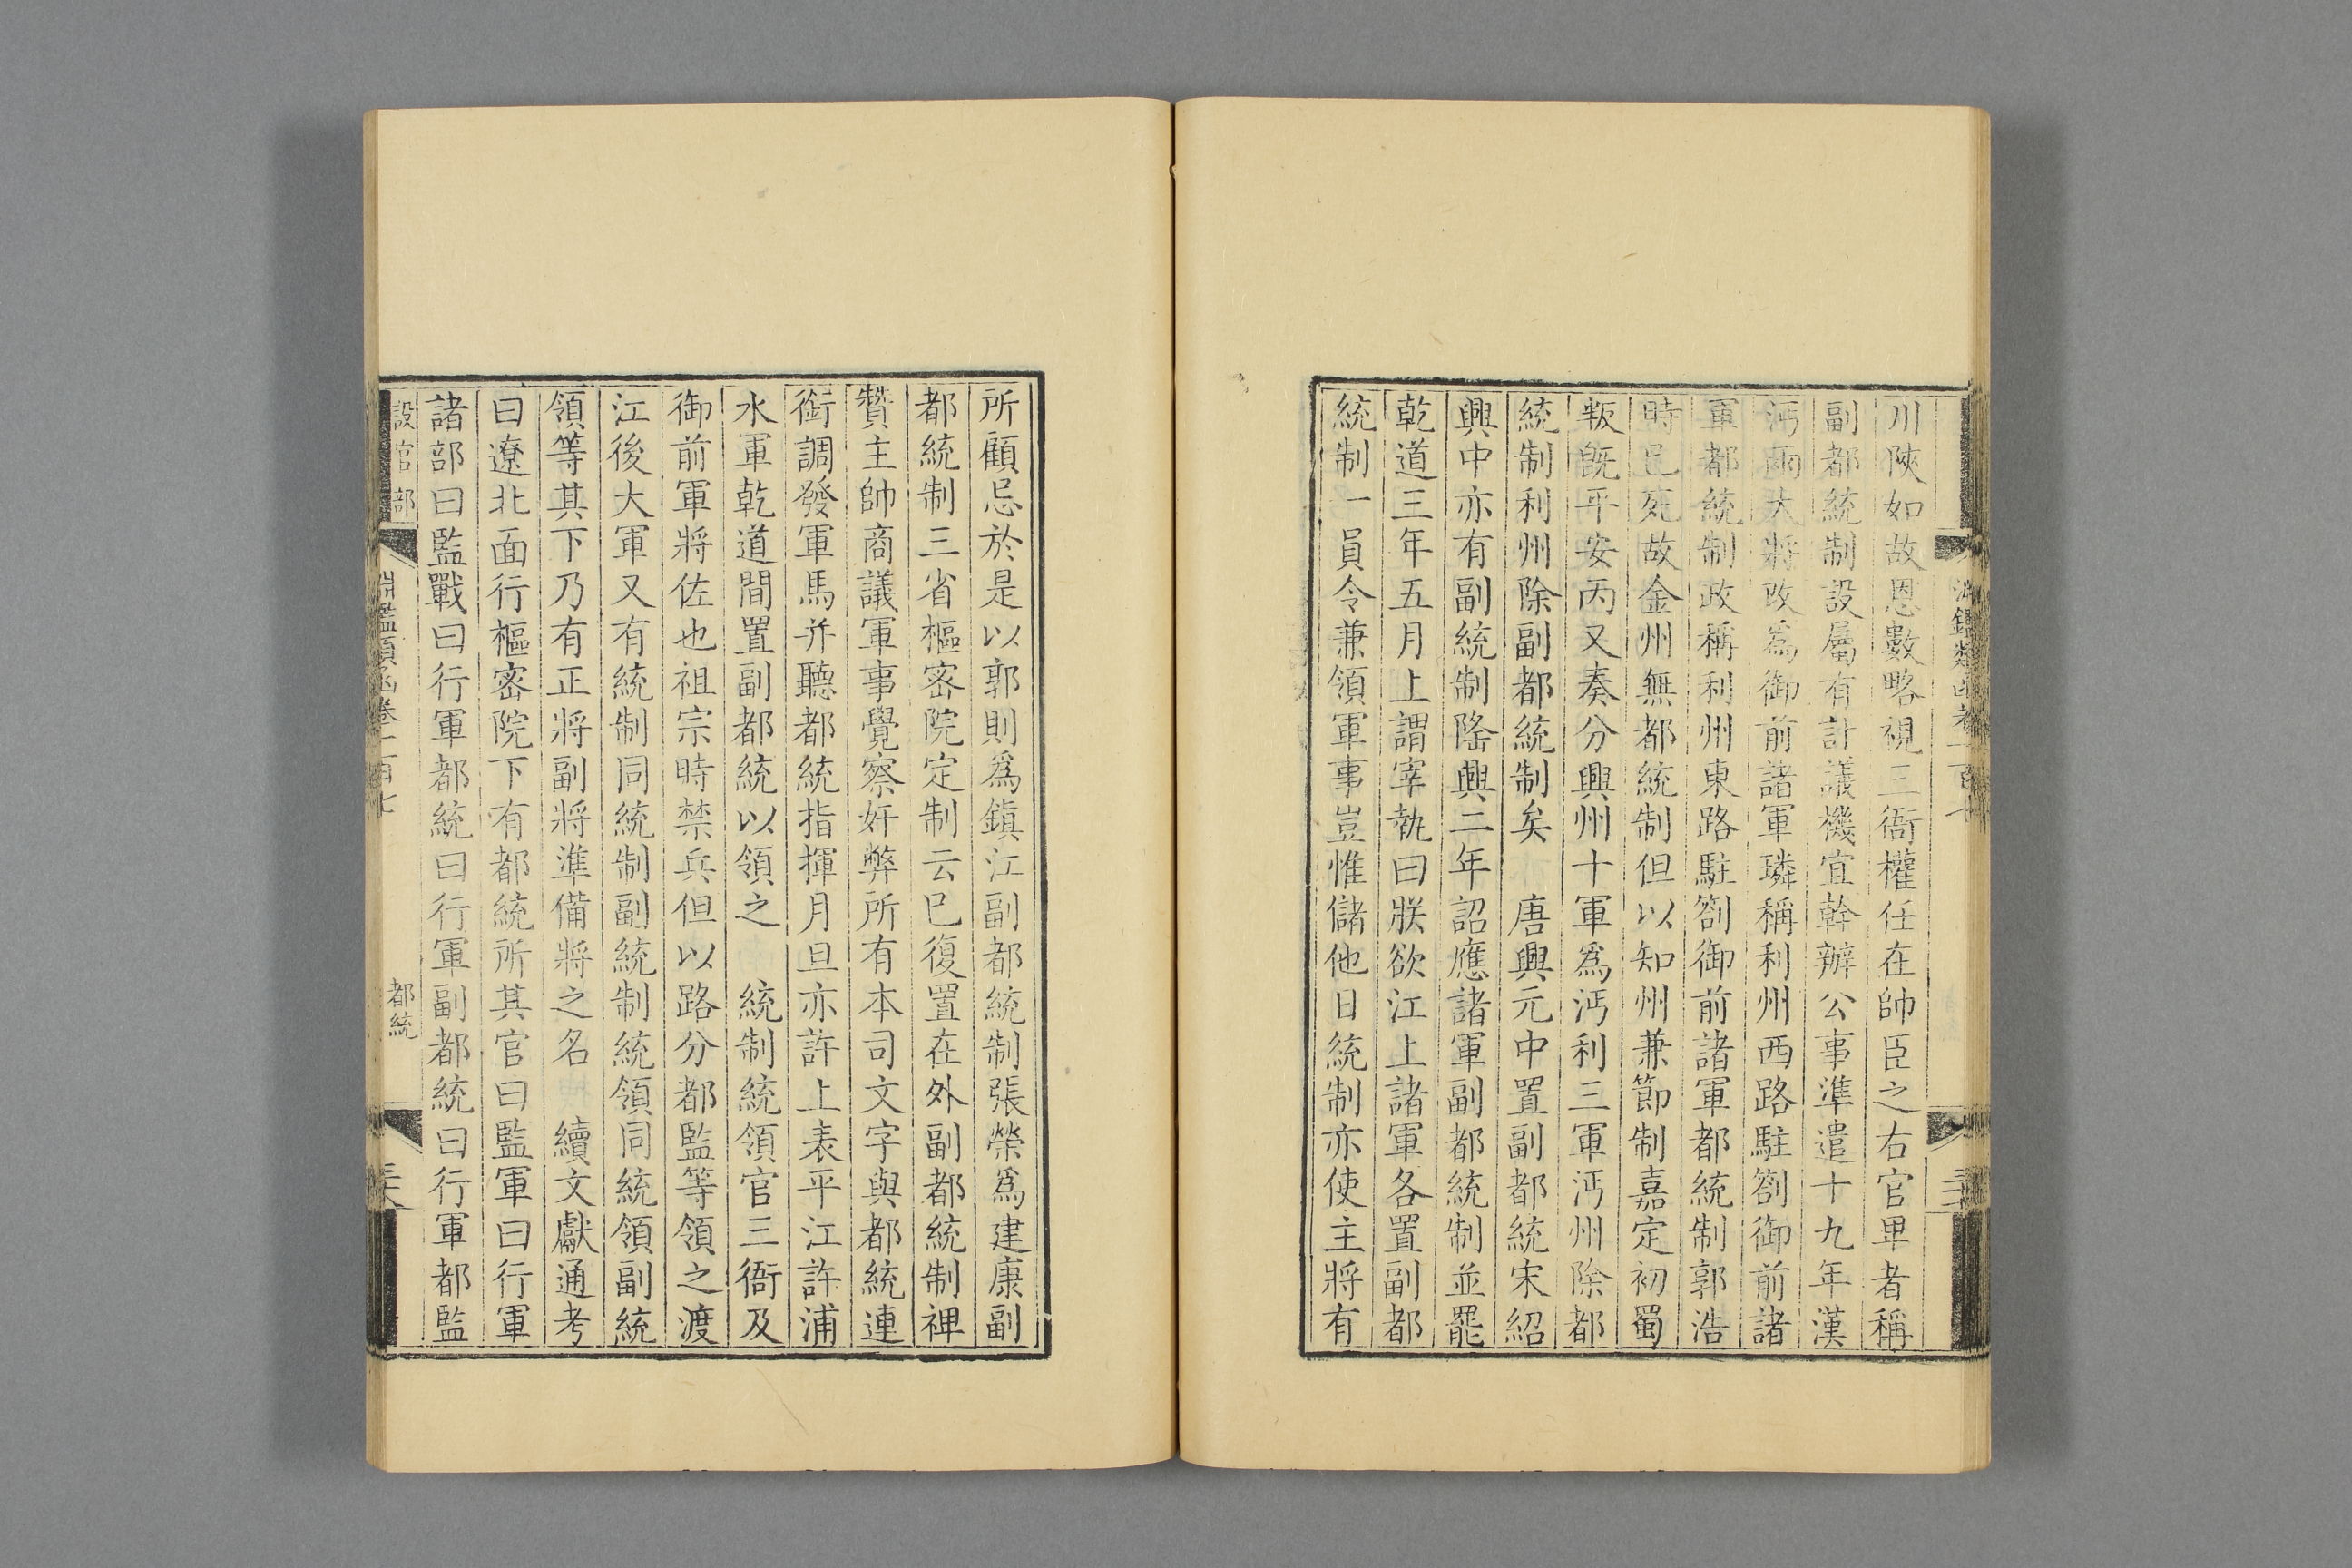 川陝如故恩數略視三衙權任在帥臣之右官卑者稱
副都統制設屬有計議機宜幹辦公事準遣十九年漢
沔兩大將改爲御前諸軍璘稱利州西路駐劄御前諸
軍都統制政稱利州東路駐劄御前諸軍都統制郭浩
時已死故金州無都統制但以知州兼節制嘉定初蜀
叛旣平安丙又奏分興州十軍爲沔利三軍沔州除都
統制利州除副都統制矣 唐興元中置副都統宋紹
興中亦有副統制隆興二年詔應諸軍副都統制並罷
乾道三年五月上謂宰執曰朕欲江上諸軍各置副都
統制一員令兼領軍事豈惟儲他日統制亦使主將有
所顧忌於是以郭則爲鎭江副都統制張榮爲建康副
都統制三省樞密院定制云已復置在外副都統制裨
贊主帥商議軍事覺察奸弊所有本司文字與都統連
銜調發軍馬幷聽都統指揮月旦亦許上表平江許浦
水軍乾道間置副都統以領之 統制統領官三衙及
御前軍將佐也祖宗時禁兵但以路分都監等領之渡
江後大軍又有統制同統制副統制統領同統領副統
領等其下乃有正將副將準備將之名 續文獻通考
曰遼北面行樞密院下有都統所其官曰監軍曰行軍
諸部曰監戰曰行軍都統曰行軍副都統曰行軍都監
設官部
淵鑑類函卷一百七
都統